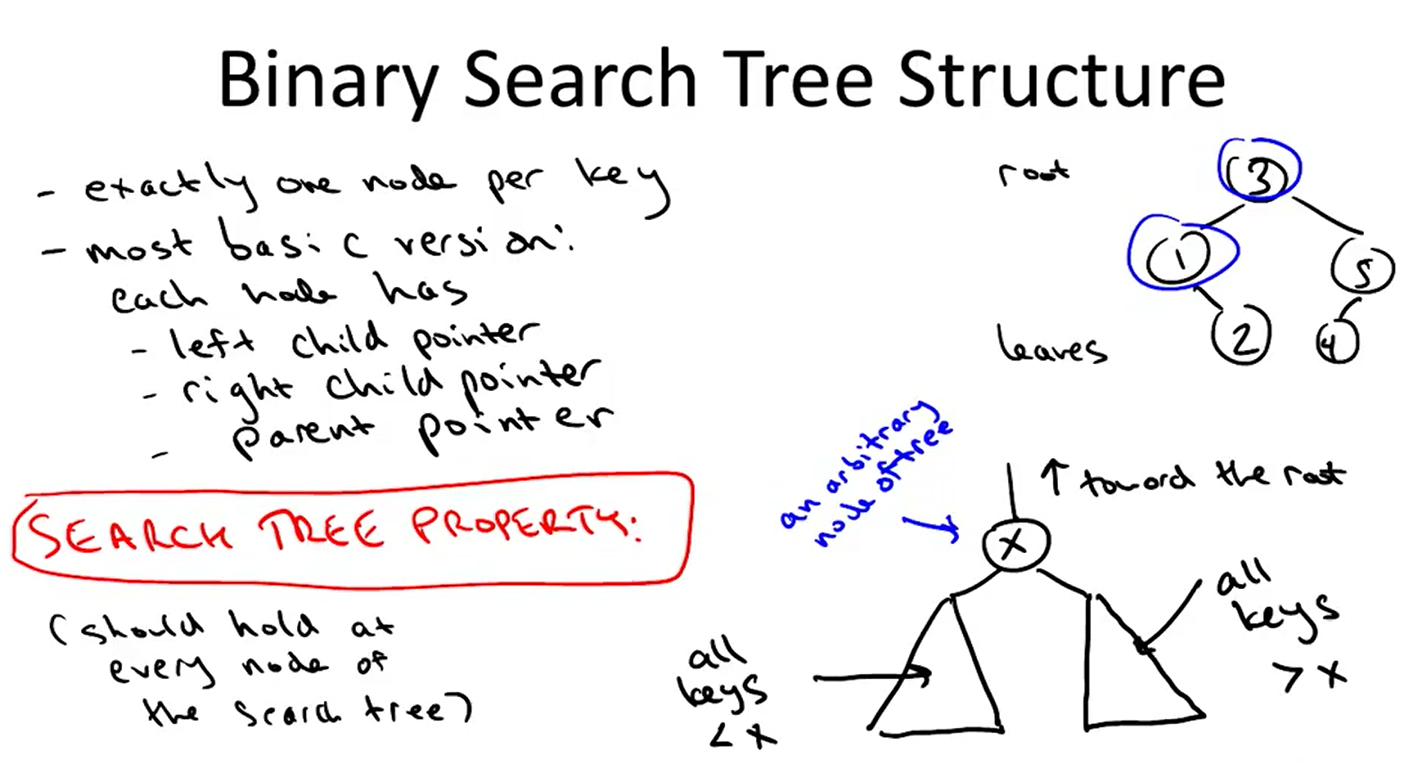 Binary Search Tree Structure
- exactly one node per key
- most basic version:
each node has
- left child pointer
- right child pointer
- parent pointer
SEARCH TREE PROPERTY:
(should hold at
every node of
the search tree)
root
3
1
5
2
4
leaves
an arbitrary
node of tree
↑ toward the root
x
all
keys
< x
all
keys
> x